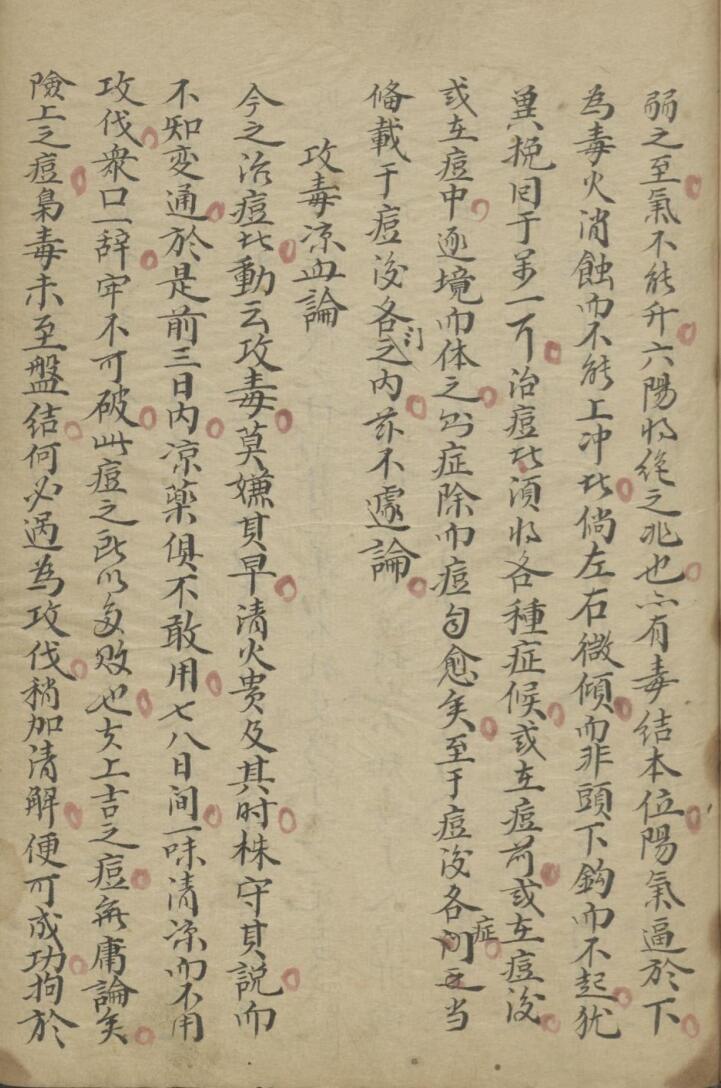 弱之至氣不能升六陽将绝之兆也亦有毒結本位陽氣逼於下
為毒火消蝕而不能上冲此倘左右微傾而非頭下鈎而不起犹
兾挽囬于萬一耳治痘此湏将各種症候或在痘前或在痘後
或在痘中逐境而体之则症除而痘自愈矣至于痘後各症当
俻載于痘後各门之内兹不遽論
攻毒凉血論
今之治痘此動云攻毒莫嫌其早清火贵及其时株守其説而
不知变通於是前三日内凉藥俱不敢用七八日间一味清凉而不用
攻伐衆口一辞牢不可破此痘之所以多败也夫上吉之痘無庸論矣
險上之痘梟毒未至盤結何必過為攻伐稍加清解便可成功拘於